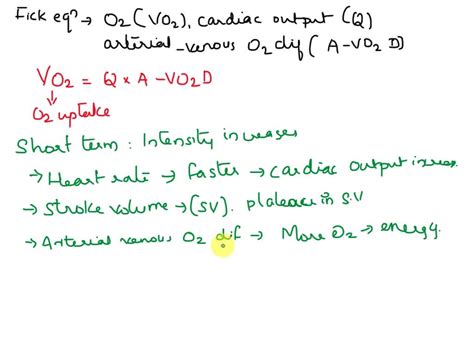 Fick eqn → O2 (VO2), cardiac output (Q)
arterial-venous O2 dif ( A-VO2 D)
VO2 = Q × A - VO2D
↓
O2 uptake
Short term : Intensity increases
→ Heart rate → faster → cardiac output increas.
→ Stroke volume → (SV). plateau in S.V
→ Arterial venous O2 dif → More O2 → energy.